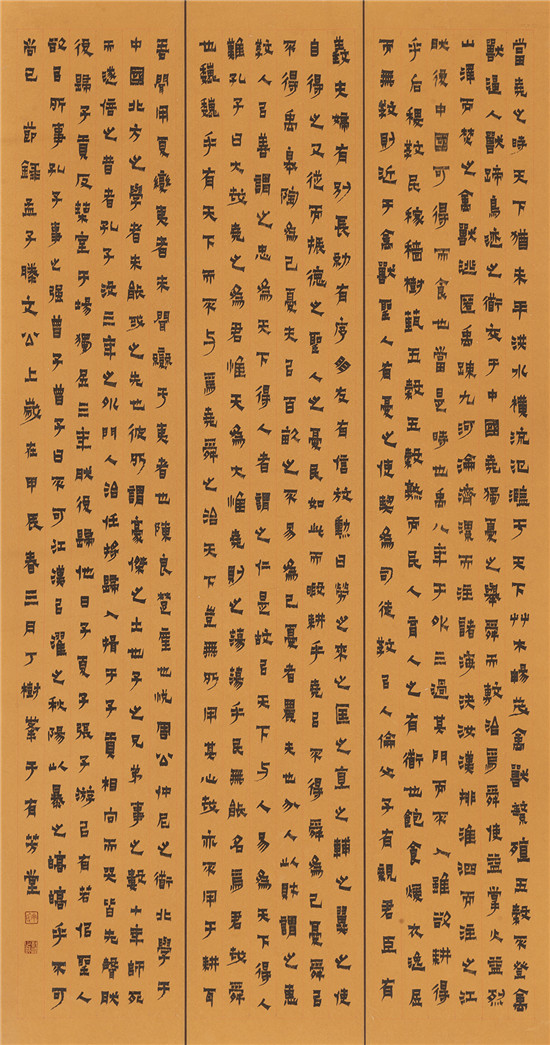 當堯之時天下猶未平洪水橫流氾濫于天下艸木暢茂禽獸繁殖五穀不登禽
獸逼人獸蹄鳥迹之衟交于中國堯獨憂之舉舜而敷治焉舜使益掌火益烈
山澤而焚之禽獸逃匿禹疏九河瀹濟漯而注諸海決汝漢排淮泗而注之江
然後中國可得而食也當是時也禹八年于外三過其門而不入雖欲耕得
乎后稷教民稼穡樹蓺五穀五穀熟而民人育人之有衟也飽食煖衣逸居
而無教則近于禽獸聖人有憂之使契為司徒教以人倫父子有親君臣有
義夫婦有別長幼有序朋友有信放勳曰勞之來之匡之直之輔之翼之使
自得之又從而振德之聖人之憂民如此而暇耕乎堯以不得舜為己憂舜以
不得禹皋陶為己憂夫以百畝之不易為己憂者農夫也分人以財謂之惠
教人以善謂之忠為天下得人者謂之仁是故以天下与人易為天下得人
難孔子曰大哉堯之為君惟天為大惟堯則之蕩蕩乎民無能名焉君哉舜
也巍巍乎有天下而不与焉堯舜之治天下豈無所用其心哉亦不用于耕耳
吾聞用夏變夷者未聞變于夷者也陳良楚產也悅周公仲尼之衟北學于
中國北方之學者未能或之先也彼所謂豪傑之士也子之兄弟事之數十年師死
而遂倍之昔者孔子沒三年之外門人治任將歸入揖于子貢相向而哭皆失聲然
後歸子貢反築室于場獨居三年然後歸他日子夏子張子游以有若佀聖人
欲以所事孔子事之強曾子曾子曰不可江漢以濯之秋陽以暴之皜皜乎不可
尚已 節錄孟子滕文公上歲在甲辰春三月丁樹峯于有芳堂